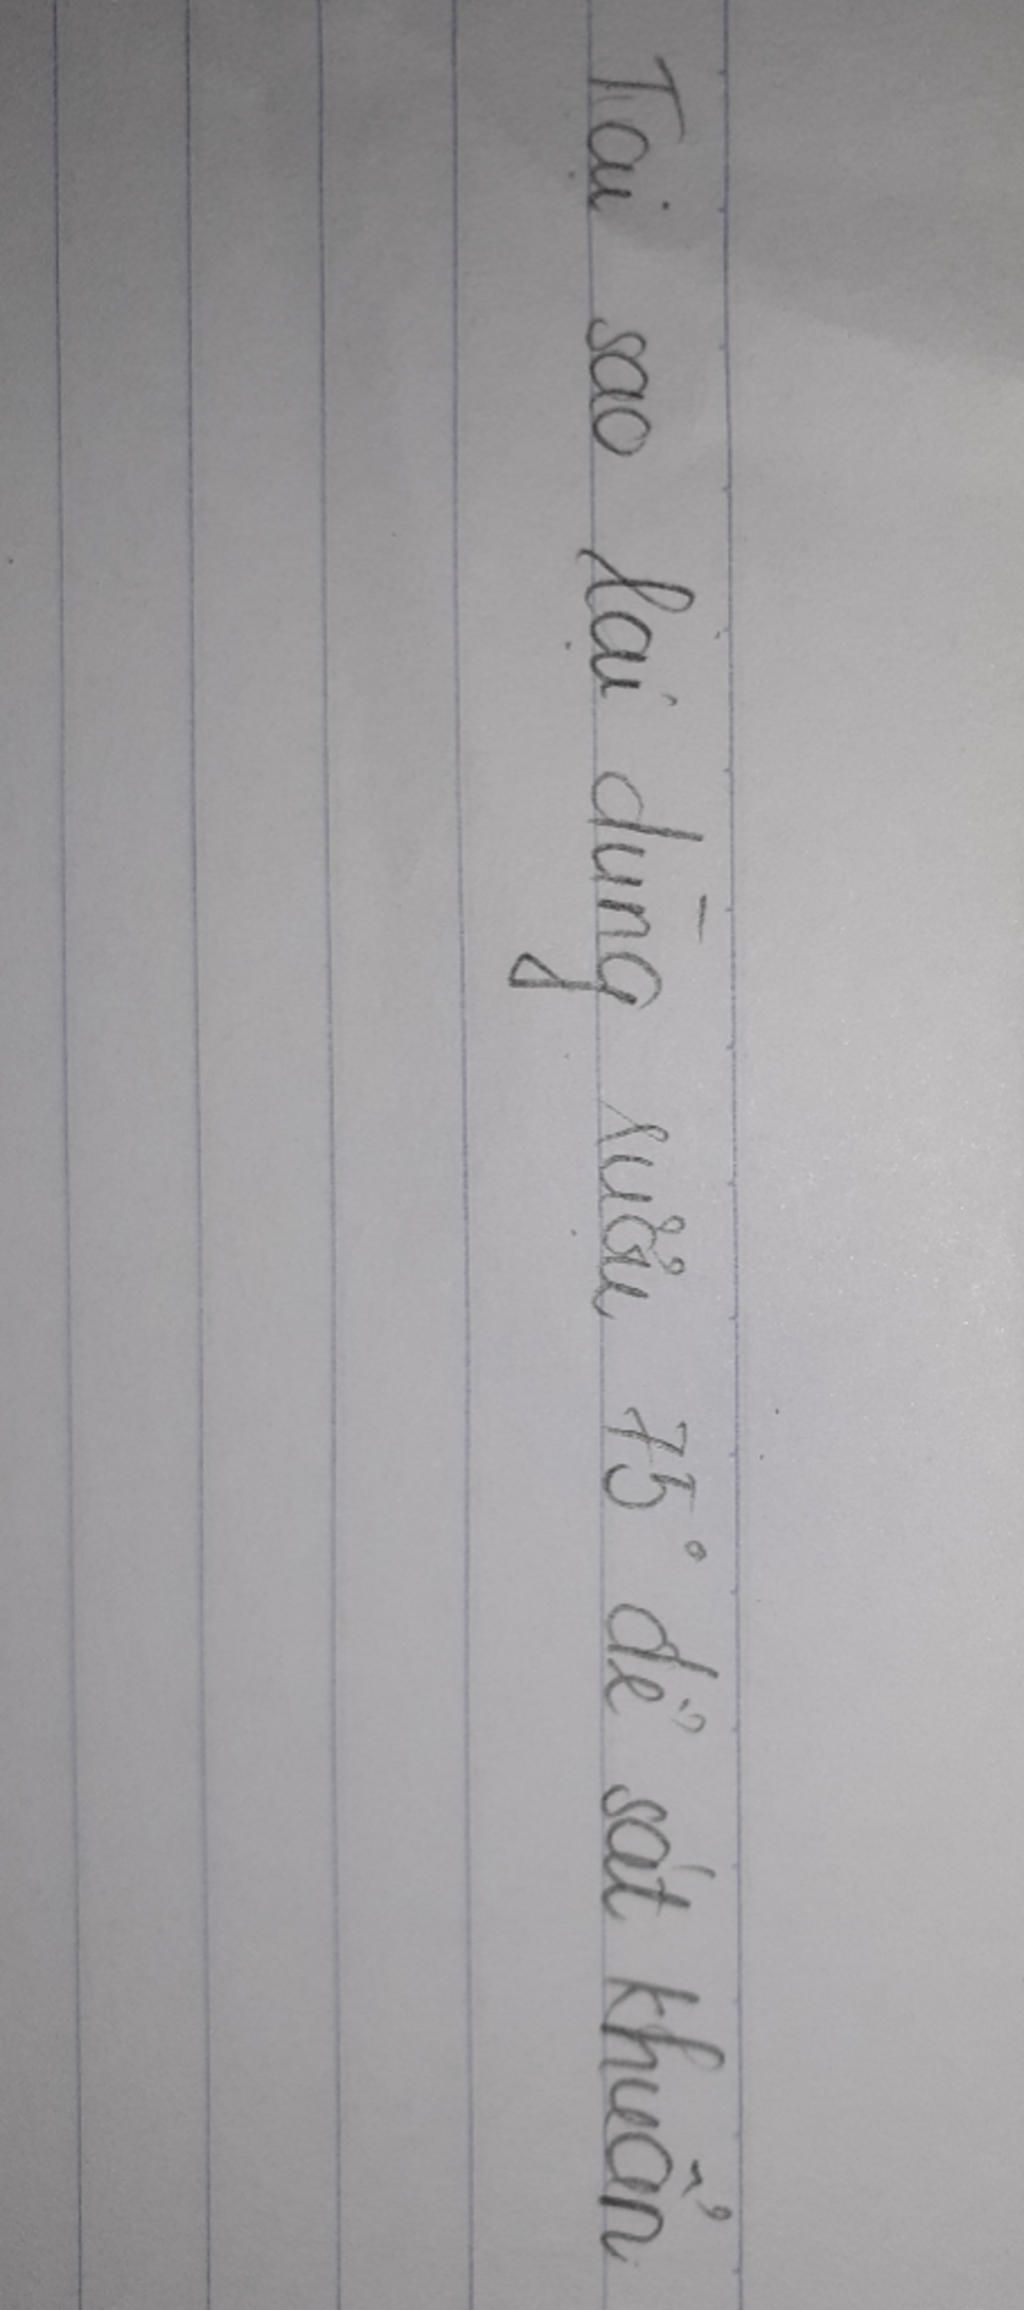 Tại sao lại dùng rượu 75° để sát khuẩn